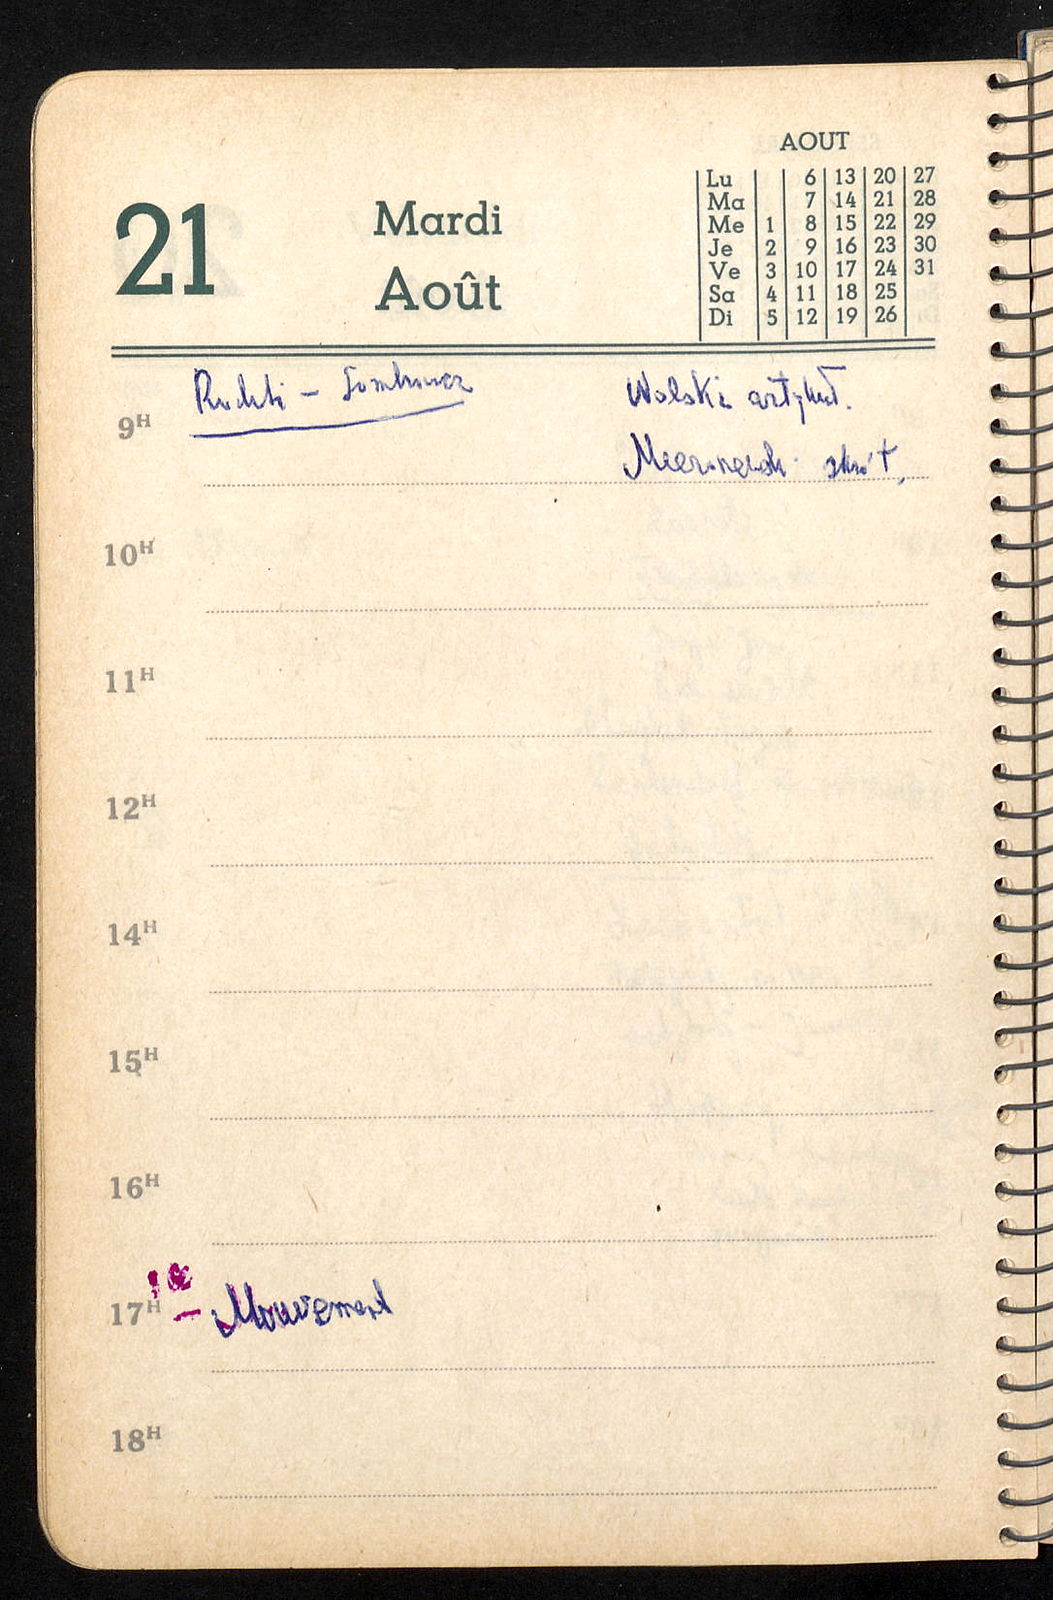 AOUT
21 Mardi
Août
Lu 6 13 20 27
Ma 7 14 21 28
Me 1 8 15 22 29
Je 2 9 16 23 30
Ve 3 10 17 24 31
Sa 4 11 18 25
Di 5 12 19 26
Wolski artykuł.
9H
skrót,
10H
11H
12H
14H
15H
16H
17H Mouvement
18H